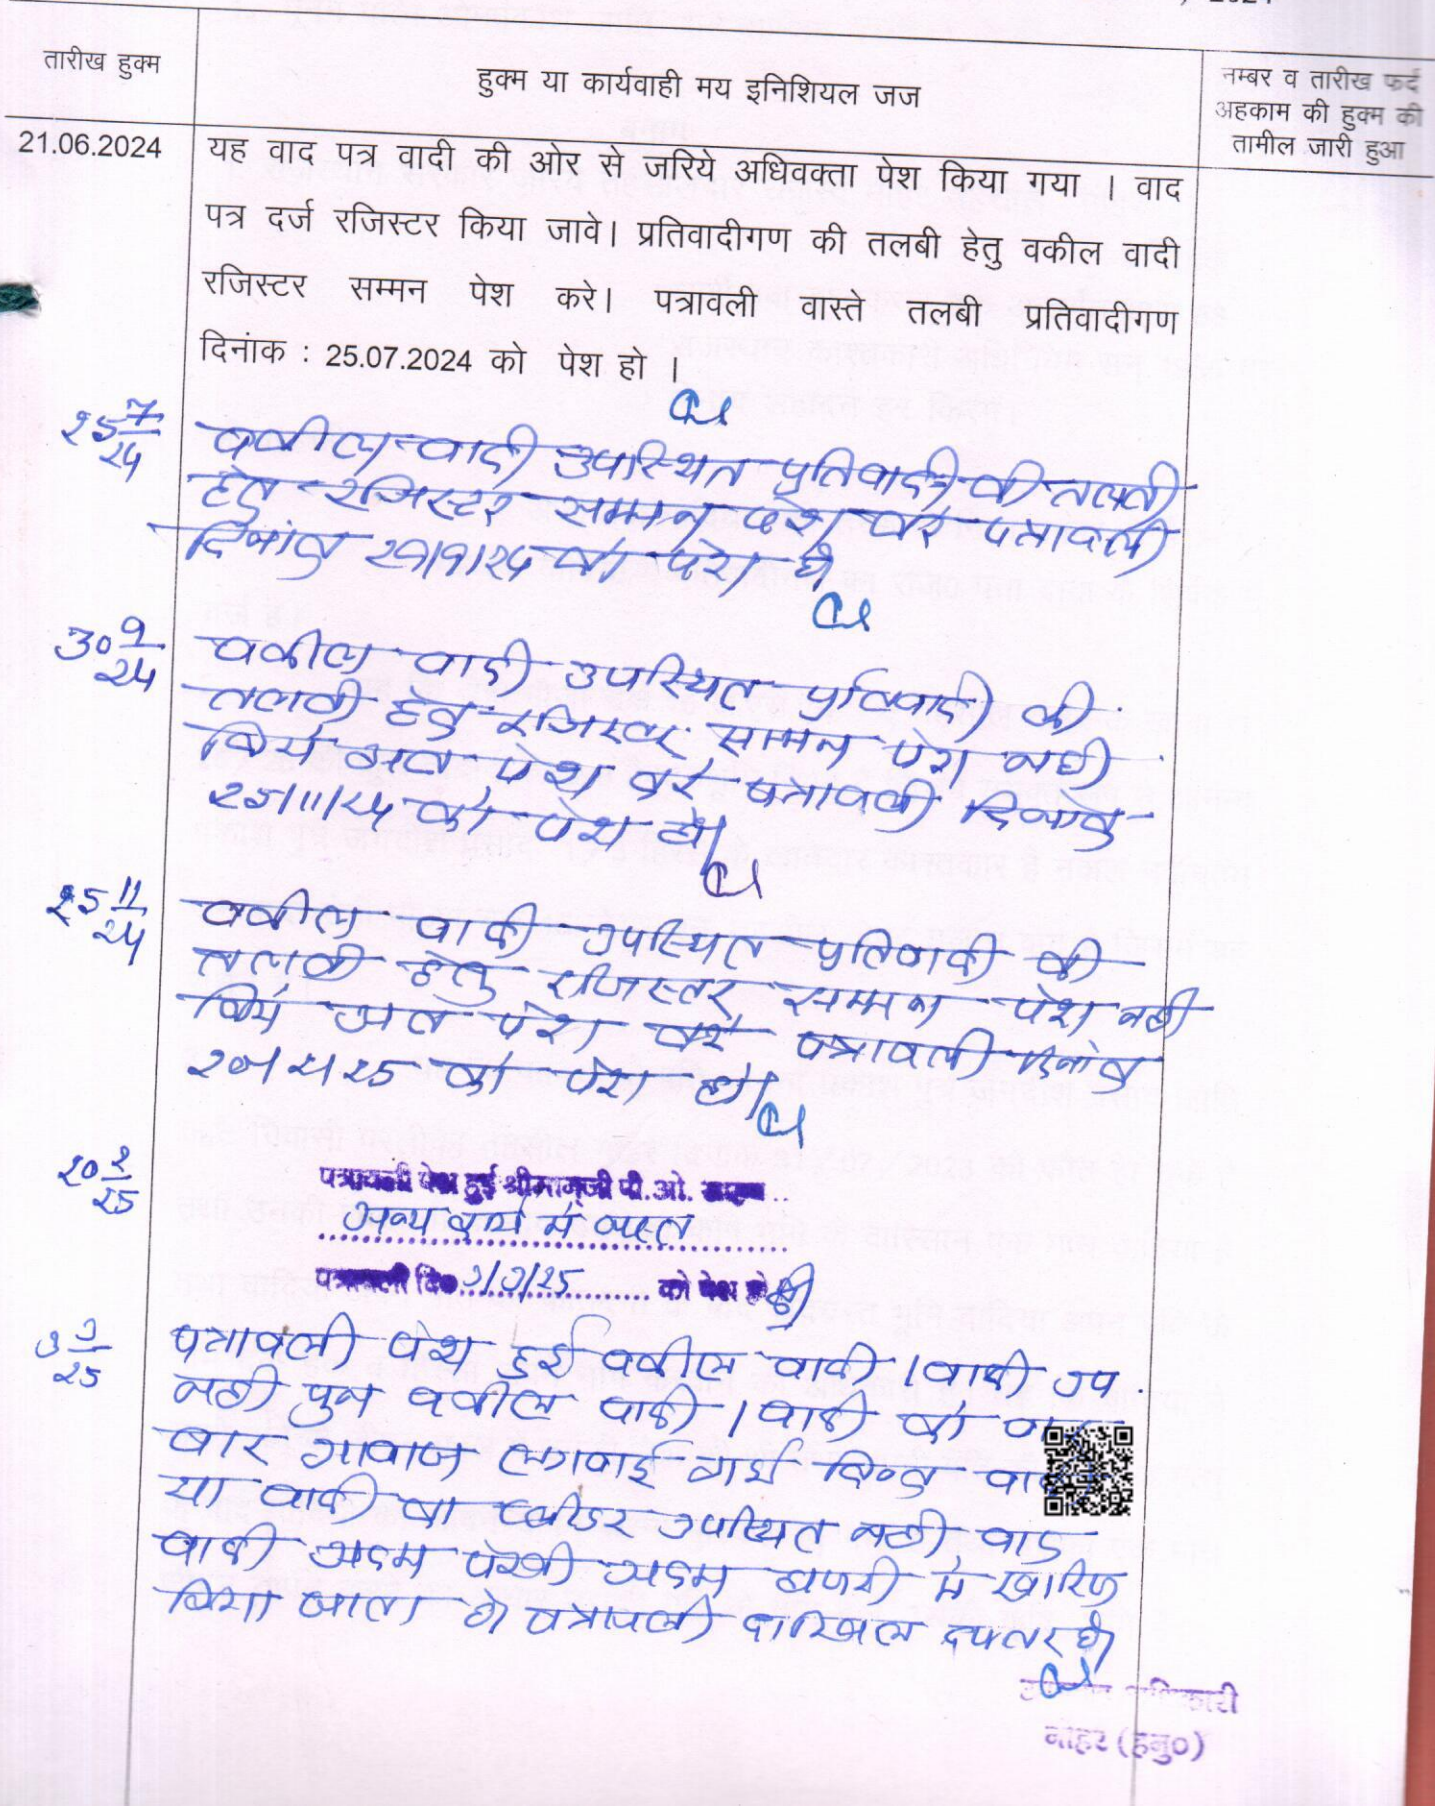 2024
तारीख हुक्म
हुक्म या कार्यवाही मय इनिशियल जज
नम्बर व तारीख फर्द
अहकाम की हुक्म की
तामील जारी हुआ
21.06.2024
यह वाद पत्र वादी की ओर से जरिये अधिवक्ता पेश किया गया । वाद
पत्र दर्ज रजिस्टर किया जावे। प्रतिवादीगण की तलबी हेतु वकील वादी
रजिस्टर सम्मन पेश करे। पत्रावली वास्ते तलबी प्रतिवादीगण
दिनांक : 25.07.2024 को पेश हो ।
25 7/24
वकील वादी उपस्थित प्रतिवादी की तलबी
हेतु रजिस्टर सम्मन पेश करे पत्रावली
दिनांक को पेश हो
30 9/24
वकील वादी उपस्थित प्रतिवादी की
तलबी हेतु रजिस्टर सम्मन पेश नही
किये अत पेश करे पत्रावली दिनांक
25/11/24 को पेश हो।
25 11/24
वकील वादी उपस्थित प्रतिवादी की
तलबी हेतु रजिस्टर सम्मन पेश नही
किये अत पेश करे पत्रावली दिनांक
को पेश हो।
20 2/25
पत्रावली पेश हुई श्रीमान्‌जी पी.ओ.
अन्य कार्य मे व्यस्त
पत्रावली दि० 3/3/25 को पेश हो
3 3/25
पत्रावली पेश हुई वकील वादी / वादी उप.
नही पुन वकील वादी / वादी को
बार आवाज लगवाई गई किन्तु
या वादी का प्लीडर उपस्थित नही वाद
वादी अदम पेरवी अदम हाजरी मे खारिज
किया जाता हे। पत्रावली दाखिल दफ्तर हो
नोहर (हनु०)